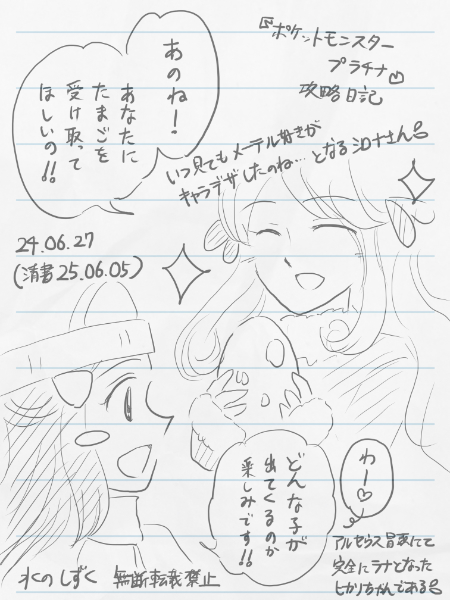 『ポケットモンスター
プラチナ』
攻略日記
いつ見てもメーテル好きが
キャラデザしたのね…となるシロナさん
あのね!
あなたに
たまごを
受け取って
ほしいの!!
24.06.27
(清書25.06.05)
どんな子が
出てくるのか
楽しみです!!
わー♡
アルセウス冒険にて
完全にラナとなった
ヒカリちゃんである
氷のしずく 無断転載禁止